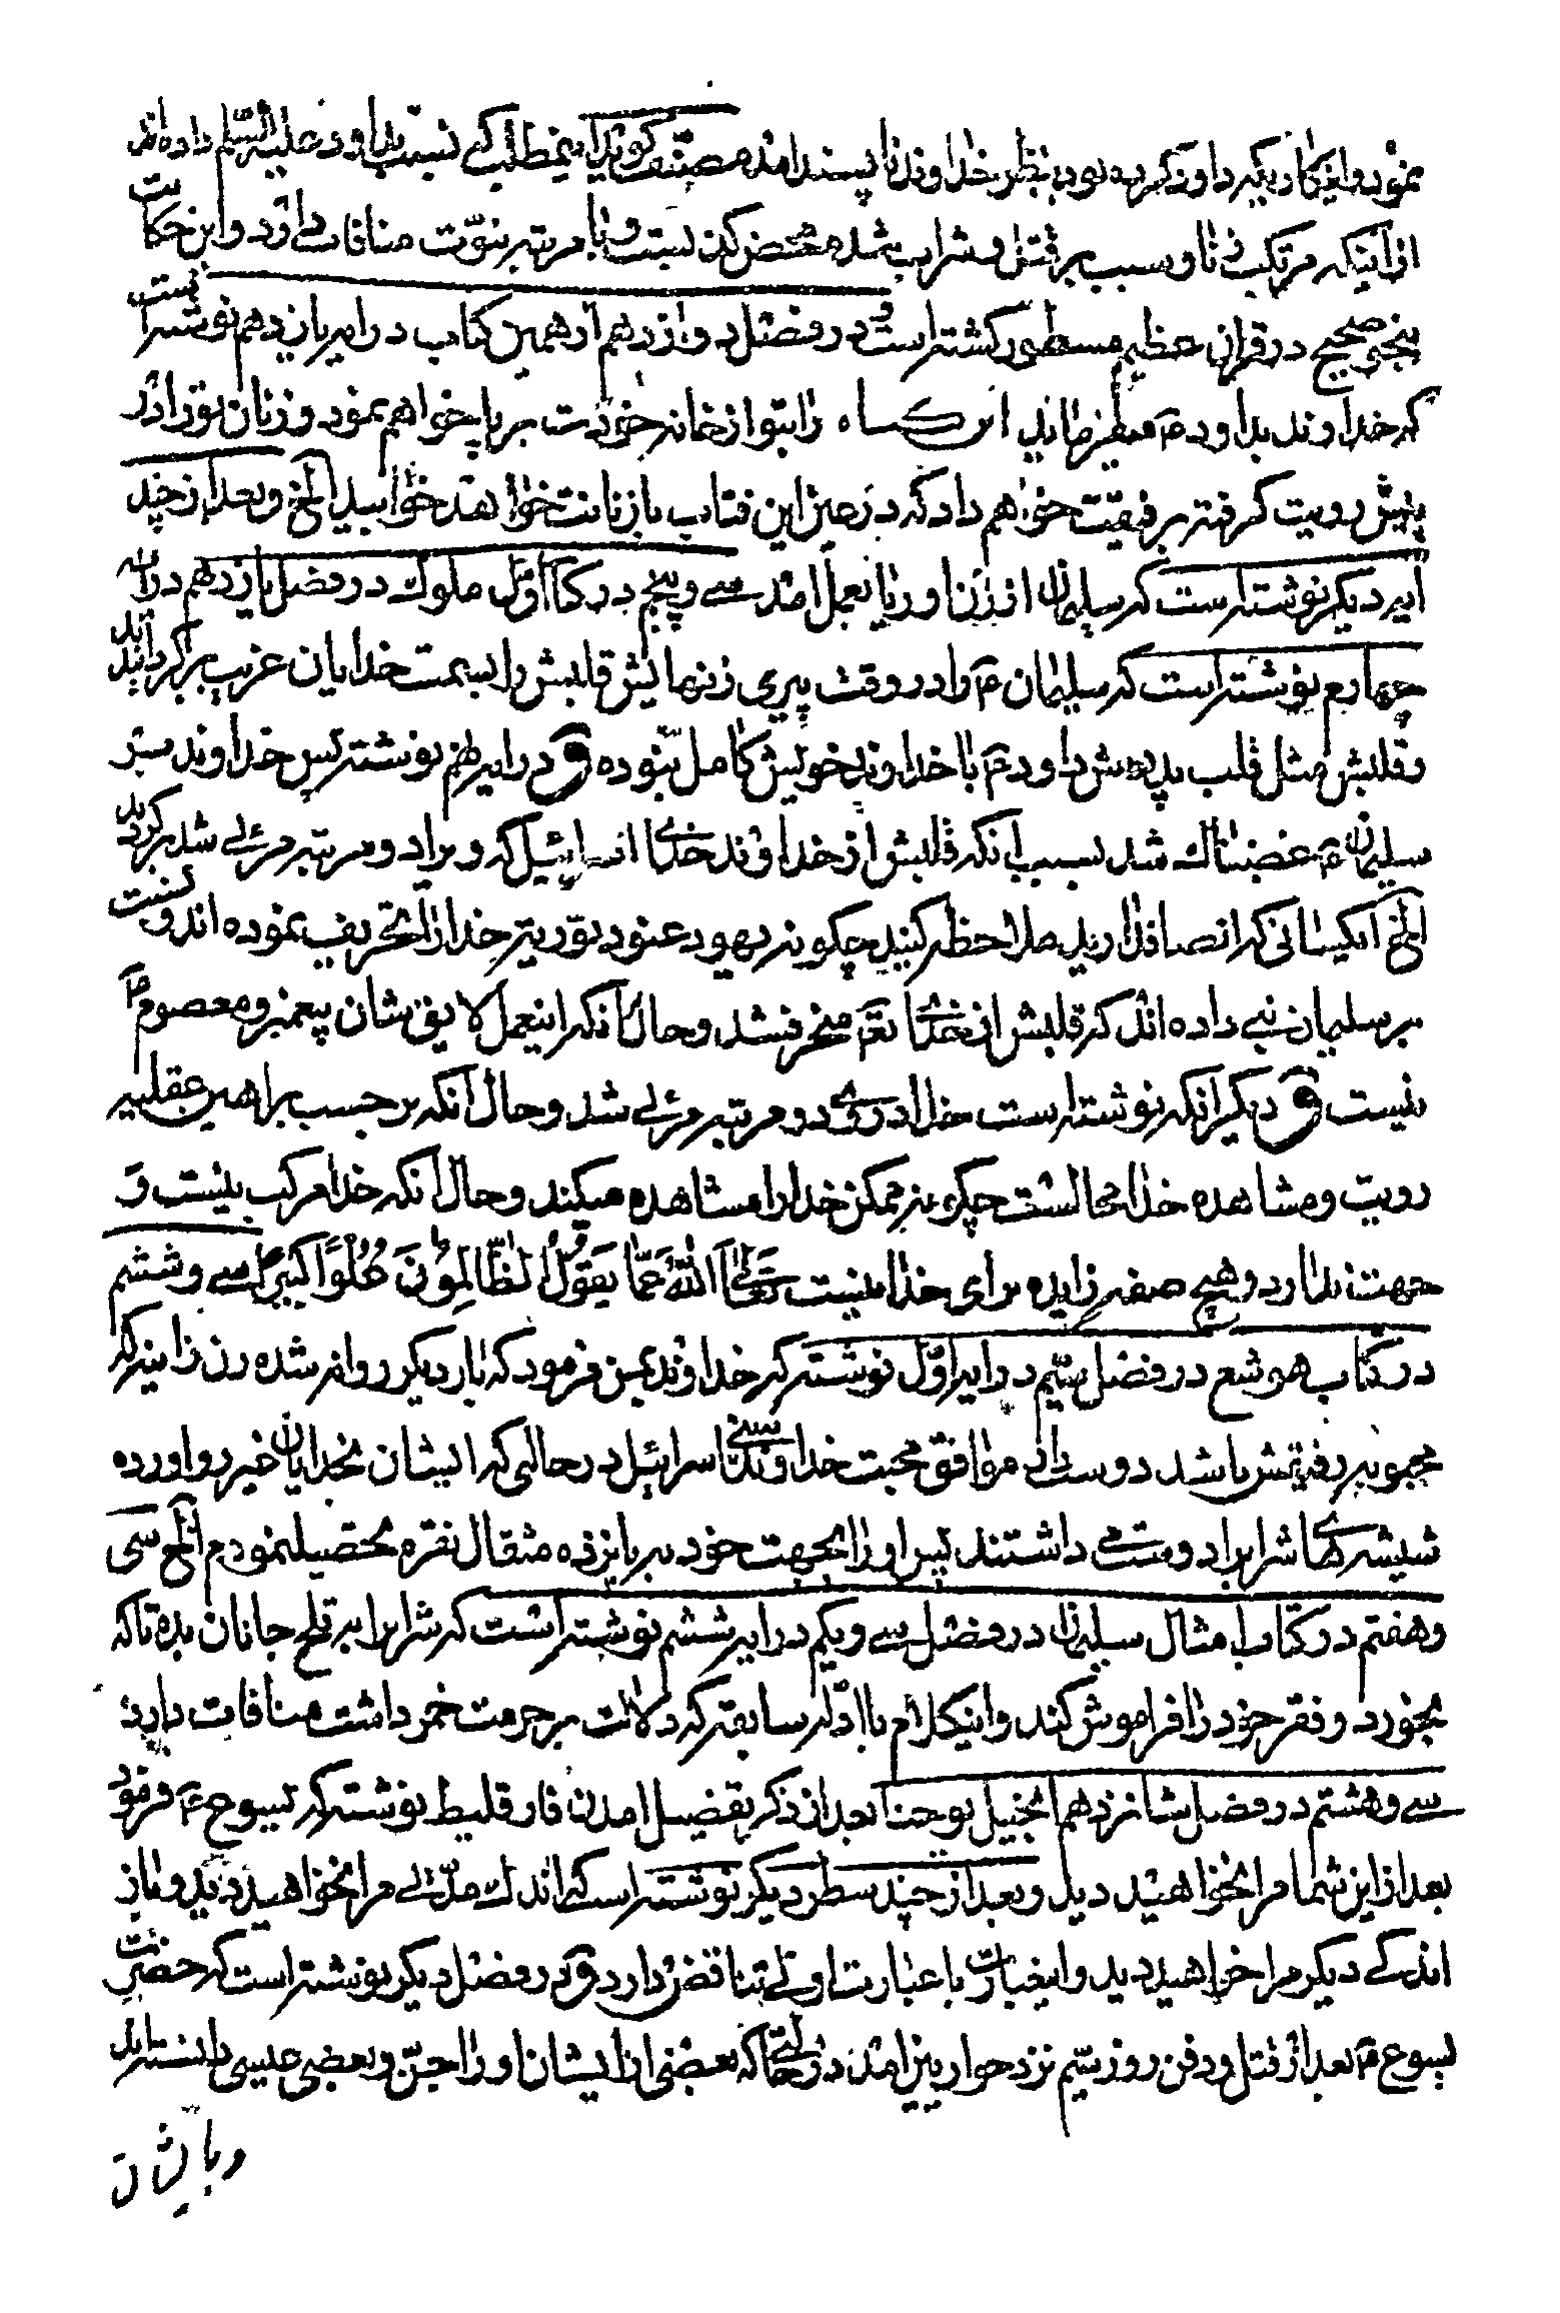 نمود و اینکار دیگر داود کرده بود بنظر خداوند ناپسند امد مصنف گوید اینمطلب که نسبت بداود علیه السّلم داده‌اند
از اینکه مرتکب زنا و سبب بر قتل و شرابب شده محض کذبست و با مرتبه نبوّت منافات دارد و این حکایت
بنحو صحیح در قران عظیم مسطور گشته است و در فصل دوازدهم از همین کتاب در ایه یازدهم نوشته است
که خداوند بداود ع میفرماید این گناه را بتو از خانه خودت برپا خواهم نمود و زنان تو را در
پیش رویت گرفته برفیقت خواهم داد که در عین این فتاب با زنانت خواهد خوابید الخ و بعد از چند
ایه دیگر نوشته است که سلیمان از زن اوریا بعمل امد سے و پنجم در کتا اوّل ملوک در فصل یازدهم در ایه
چهارم نوشته است که سلیمان ع را در وقت پیری زنهایش قلبش را بسمت خدایان غریب برگردانیدند
و قلبش مثل قلب پدرش داود ع با خداوند خویش کامل نبوده و در ایه نهم نوشته پس خداوند بر
سلیمان ع غضبناک شد بسبب انکه قلبش از خداوند خدای اسرائیل که ویرا دو مرتبه مرئے شد برگردید
الخ ایکسانی که انصاف دارید ملاحظه کنید چگونه یهود عنود توریة خدا را تحریف نموده‌اند و نسبت
بر سلیمان نبے داده‌اند که قلبش از خدای تعم منحرف شد و حال انکه اینعمل لایق شان پیغمبر و معصوم
نیست و دیگر انکه نوشته است خدا در وی دو مرتبه مرئے شد و حال انکه بر حسب براهین عقلیه
رویت و مشاهده خدا محالست چگونه ممکن خدا را مشاهده میکند و حال انکه خدا مرکب نیست و
جهت ندارد و هیچ صفه زایده برای خدا نیست تَعٰالیَ اللّهُ عَمّٰا یَقُولُ الظّٰالِمُونَ عُلُوًّا کَبیرًا سے و ششم
در کتاب هوشع در فصل سیّم در ایه اوّل نوشته که خداوند بمن فرمود که بار دیگر روانه شده زن زانیه که
محبوبه رفیقش باشد دوست دار موافق محبت خداوند ببنی اسرائیل در حالی که ایشان بخدایان غیر رو اورده
شیشه های شرابرا دوست مے داشتند پس او را بجهت خود به پانزده مثقال نقره تحصیل نمودم الخ سی
و هفتم در کتاب امثال سلیمان در فصل سے و یکم در ایه ششم نوشته است که شرابرا به تلخ جانان بده تا که
بخورد و فقر خود را فراموش کند و اینکلام با ادلّه سابقه که دلالت بر حرمت خمر داشت منافات دارد
سے و هشتم در فصل شانزدهم انجیل یوحنا بعد از ذکر تفضیل امدن فارقلیط نوشته که یسوع ع فرمود
بعد از این شما مرا نخواهید دید و بعد از چند سطر دیگر نوشته است که اندک مدّتے مرا نخواهید دید و باز
اندکے دیگر مرا خواهید دید و اینعبارت با عبارت اولے تناقض دارد و در فصل دیگر نوشته است که حضرت
یسوع ع بعد از قتل و دفن روز سیّم نزد حواریین امد در حالتی که بعضی از ایشان او را جنّ و بعضی عیسی دانسته‌اند
و با